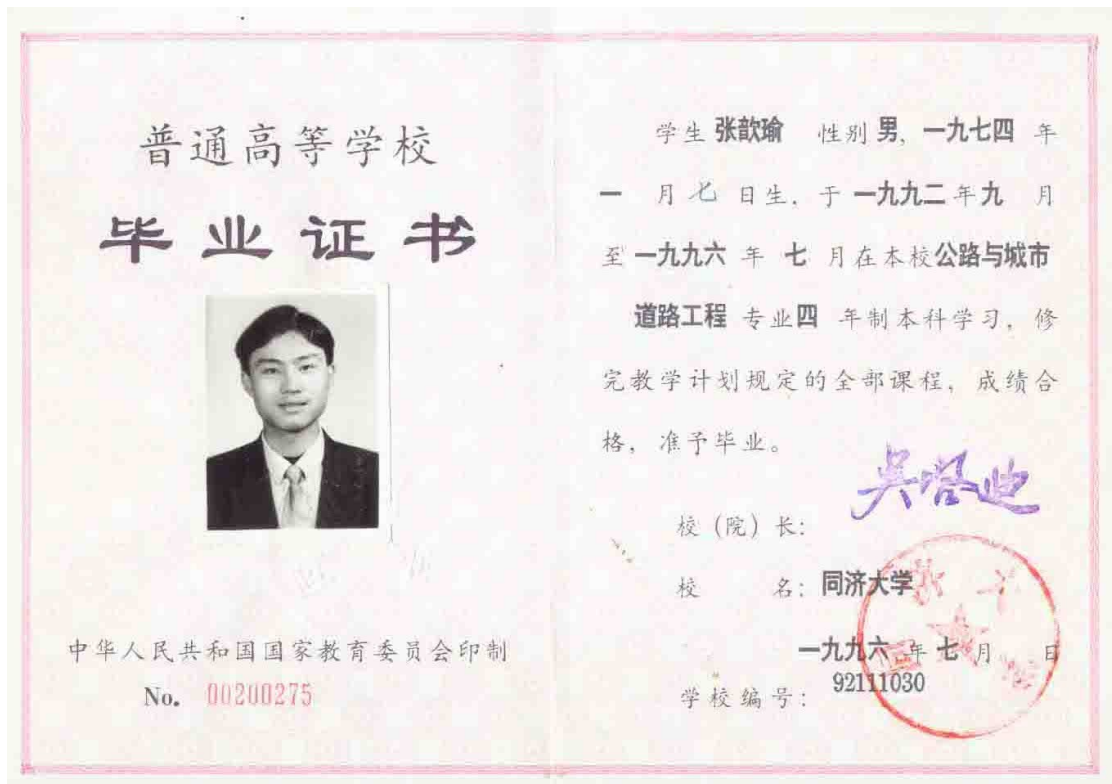 普通高等学校
毕业证书
中华人民共和国国家教育委员会印制
No. 00200275
学生 张歆瑜 性别 男, 一九七四 年
一 月 七 日生, 于 一九九二 年 九 月
至 一九九六 年 七 月在本校 公路与城市
道路工程 专业 四 年制本科学习, 修
完教学计划规定的全部课程, 成绩合
格, 准予毕业。
吴启迪
校 (院) 长:
校 名: 同济大学
一九九六 年 七 月 日
学校编号: 92111030